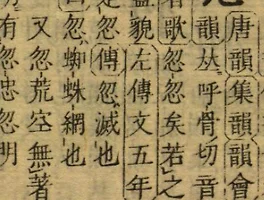 唐韻集韻韻會
韻𠀤呼骨切音
歌忽忽矣若之
貌左傳文五年
忽傳忽滅也
忽蜘蛛網也
又忽荒空無著
有忽忠忽明